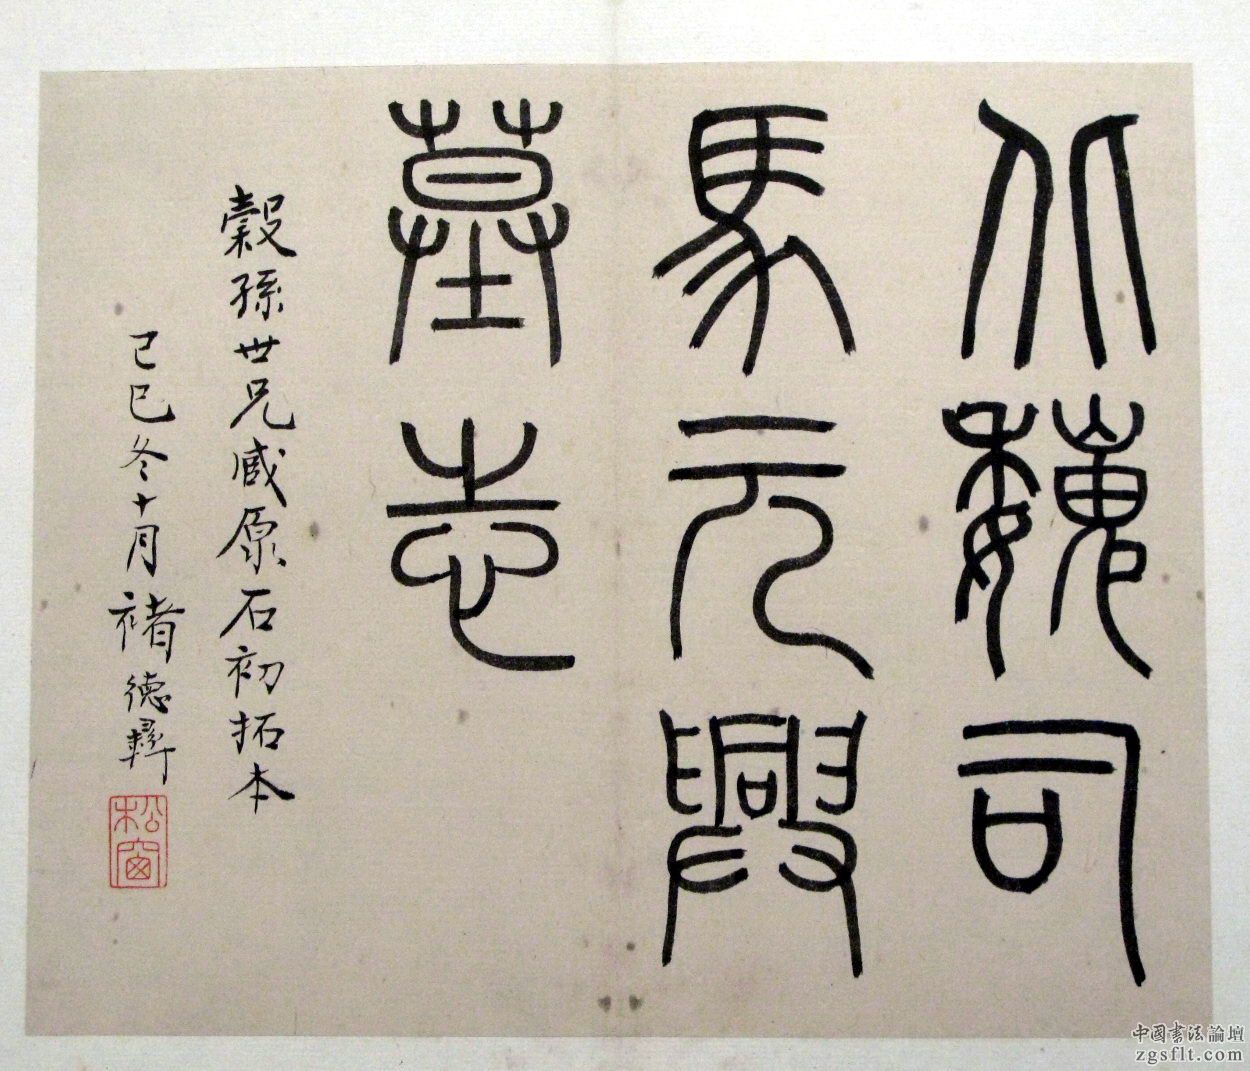 北魏司
馬元興
墓志
穀孫世兄臧原石初拓本
己巳冬十月褚德彝
松窗
中國書法論壇
zgsflt.com